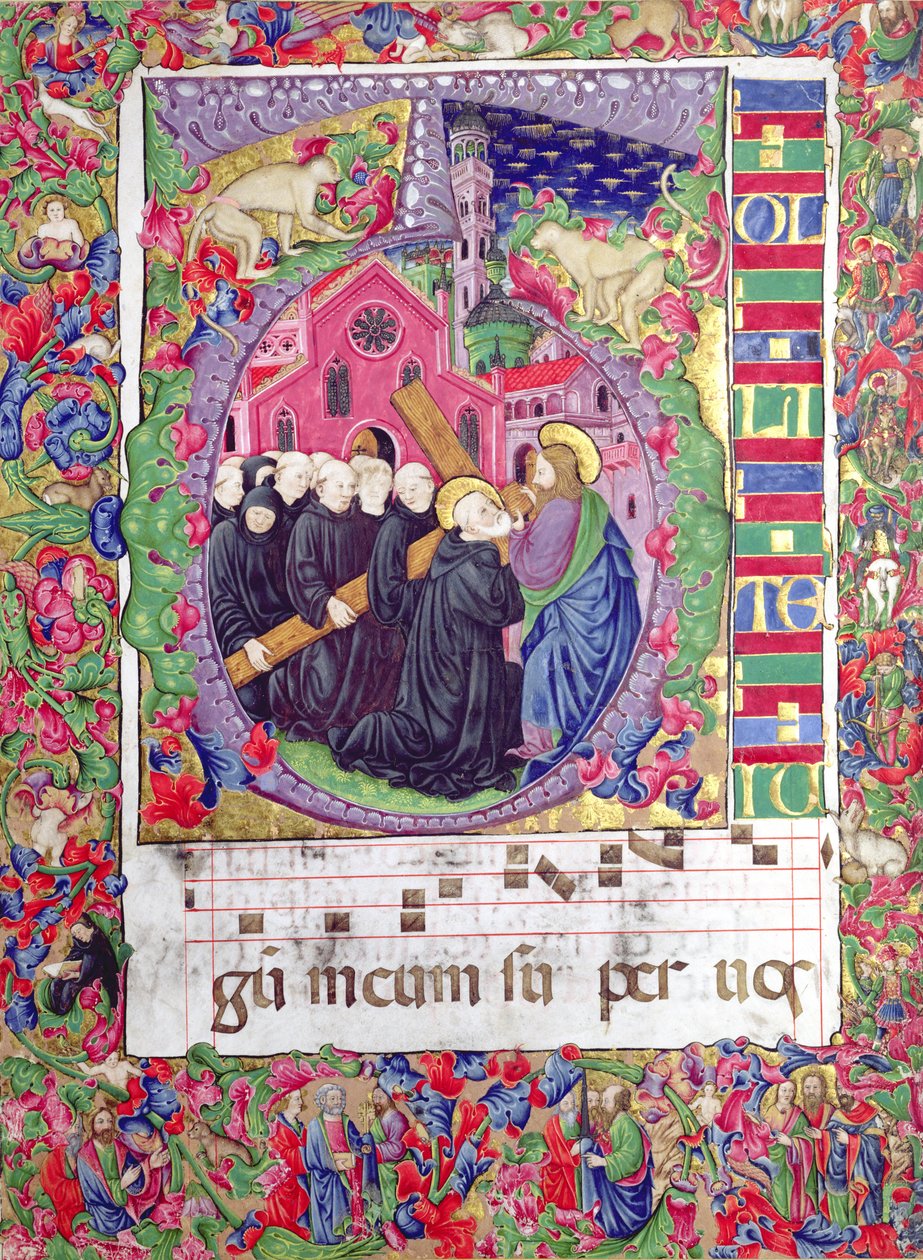 T
OL
LI
TE
IU
gu meum su per uos